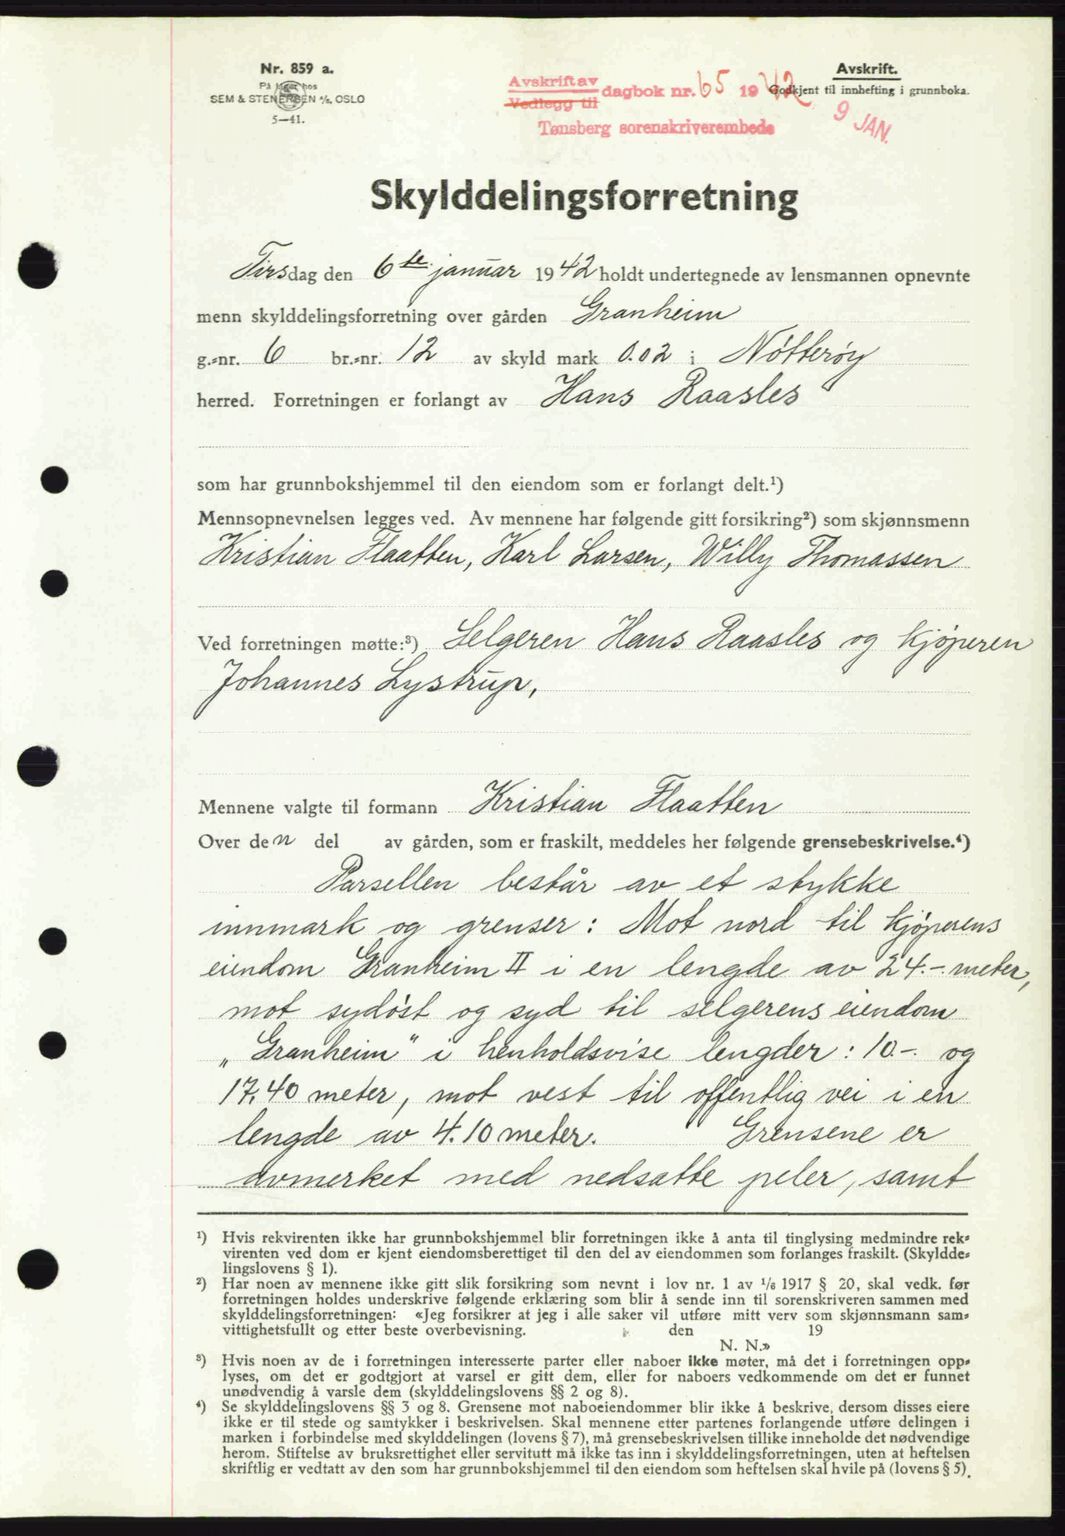 Nr. 859 a.
På lager hos
SEM & STENERSEN A/S, OSLO
5—41.
Avskrift av
Vedlegg til
dagbok nr. 65 1942
Tønsberg sorenskriverembede
Avskrift.
Godkjent til innhefting i grunnboka.
9 JAN.
Skylddelingsforretning
Tirsdag den 6te januar 1942 holdt undertegnede av lensmannen opnevnte
menn skylddelingsforretning over gården Granheim
g.-nr. 6 br.-nr. 12 av skyld mark 0.02 i Nøtterøy
herred. Forretningen er forlangt av Hans Raasles
som har grunnbokshjemmel til den eiendom som er forlangt delt.¹)
Mennsopnevnelsen legges ved. Av mennene har følgende gitt forsikring²) som skjønnsmenn
Kristian Flaatten, Karl Larsen, Willy Thomassen
Ved forretningen møtte:³) Selgeren Hans Raasles og kjøperen
Johannes Lystrup,
Mennene valgte til formann Kristian Flaatten
Over den del av gården, som er fraskilt, meddeles her følgende grensebeskrivelse.⁴)
Parsellen består av et stykke
innmark og grenser: Mot nord til kjøperens
eiendom Granheim II i en lengde av 24.- meter,
mot sydøst og syd til selgerens eiendom
„Granheim" i henholdsvise lengder: 10.- og
17.40 meter, mot vest til offentlig vei i en
lengde av 4.10 meter. Grensene er
avmerket med nedsatte peler, samt
¹) Hvis rekvirenten ikke har grunnbokshjemmel blir forretningen ikke å anta til tinglysing medmindre rek-
virenten ved dom er kjent eiendomsberettiget til den del av eiendommen som forlanges fraskilt. (Skyldde-
lingslovens § 1).
²) Har noen av mennene ikke gitt slik forsikring som nevnt i lov nr. 1 av 1/6 1917 § 20, skal vedk. før
forretningen holdes underskrive følgende erklæring som blir å sende inn til sorenskriveren sammen med
skylddelingsforretningen: «Jeg forsikrer at jeg i alle saker vil utføre mitt verv som skjønnsmann sam-
vittighetsfullt og etter beste overbevisning. den 19
N. N.»
³) Hvis noen av de i forretningen interesserte parter eller naboer ikke møter, må det i forretningen opp-
lyses, om det er godtgjort at varsel er gitt dem, eller for naboers vedkommende om det er funnet
unødvendig å varsle dem (skylddelingslovens §§ 2 og 8).
⁴) Se skylddelingslovens §§ 3 og 8. Grensene mot naboeiendommer blir ikke å beskrive, dersom disses eiere
ikke er til stede og samtykker i beskrivelsen. Skal mennene etter partenes forlangende utføre delingen i
marken i forbindelse med skylddelingen (lovens § 7), må grensebeskrivelsen tillike inneholde det nødvendige
herom. Stiftelse av bruksrettighet eller servitutt må ikke tas inn i skylddelingsforretningen, uten at heftelsen
skriftlig er vedtatt av den som har grunnbokshjemmel til den eiendom som heftelsen skal hvile på (lovens § 5).